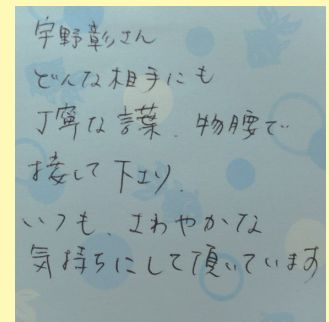 宇野彰さん
どんな相手にも
丁寧な言葉、物腰で
接して下さり、
いつも、さわやかな
気持ちにして頂いています